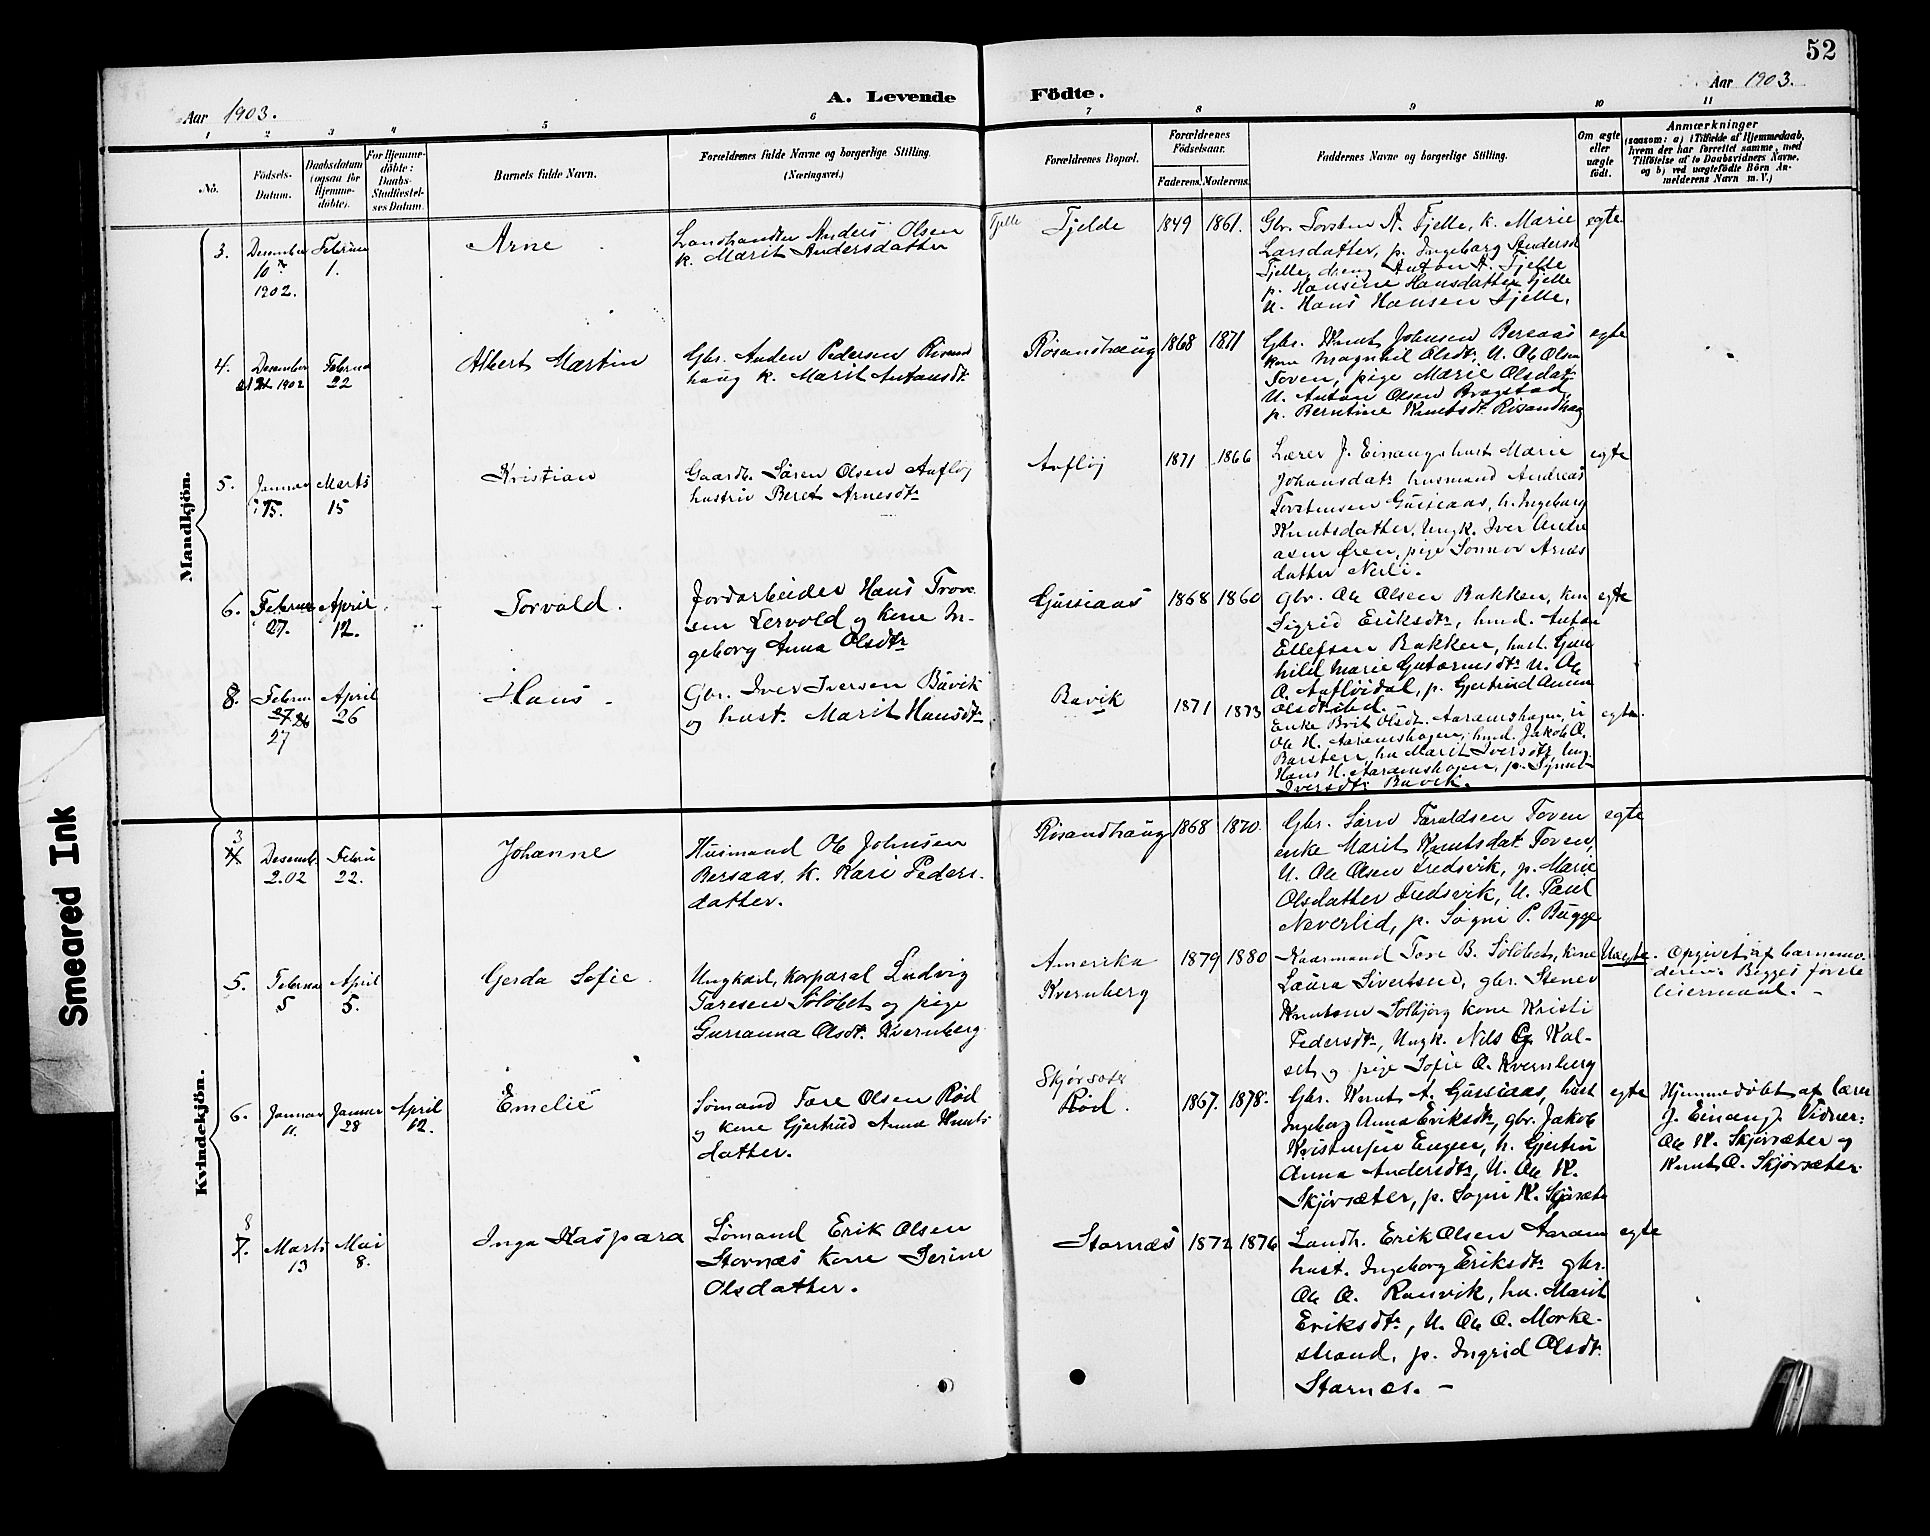 52
Aar 1903.
A. Levende
Födte.
Aar 1903.
1
2
3
4
5
6
7
8
9
10
11
No.
Födsels-
Datum.
Daabsdatum
(ogsaa for
Hjemme-
döbte).
For Hjemme-
döbte:
Daabs-
Stadfæstel-
ses Datum.
Barnets fulde Navn.
Forældrenes fulde Navne og borgerlige Stilling.
(Næringsvei.)
Forældrenes Bopæl.
Forældrenes
Födselsaar.
Faderens.
Moderens.
Faddernes Navne og borgerlige Stilling.
Om ægte
eller
uægte
födt.
Anmærkninger
(saasom: a) i Tilfælde af Hjemmedaab,
hvem der har forrettet samme, med
Tilföielse af to Daabsvidners Navne,
og b) ved uægtefödte Börn An-
melderens Navn m. V.)
Mandkjön.
3.
Desember
10
1902.
Februar
1.
Arne
Landhandler Anders Olsen
k. Marit Andersdatter
Tjelle
Tjelde
1849
1861.
Gbr. Torsten A. Tjelle, k. Marie
Larsdatter, p. Ingeborg Andersd
Tjelle, dreng Anton A. Tjelle
p. Hansine Hansdatter Tjelle
U. Hans Hansen Tjelle.
egte
4.
Desember
21 1902
Februa
22
Albert Martin
Gbr. Anden Pedersen Risand
haug k. Marit Antonsdt.
Røsandhaug
1868
1871
Gbr. Knut Johnsen Bersaas
kone Magnhil Olsdt. U. Ole Olsen
Toven, pige Marie Olsdat.
U. Anton Olsen Bragstad,
p. Berntine Knutsdt. Risandhag
egte
5.
Januar
15.
Marts
15
Kristian
Gaardb. Sören Olsen Aufløj
hustru Beret Arnesdt.
Aufløj
1871
1866
Lærer J. Einang, hust Marie
Johansdat. husmand Andreas
Torstensen Gussiaas, h. Ingeborg
Knutsdatter, Ungk. Iver Andre
asen Øren, pige Sonnov Arnes
datter Nerli.
egte
6.
Februar
27.
April
12.
Torvald.
Jordarbeider Hans Trons
sen Lervold og kone In-
geborg Anna Olsdt.
Gussiaas
1868
1860
Gbr. Ole Olsen Bakken, kon
Sigrid Eriksdt., husd. Anton
Ellefsen Bakken, hust. Gun
hild Marie Gutormsdt. U. Ole
O. Aufløidal, p. Gjertrud Anna
Olsdt. ibd.
egte
8.
Februar
27
April
26
Hans.
Gbr. Iver Iversen Bavik
og hust. Marit Hansdt.
Bavik
1871
1873
Enke Brit Olsdt. Aaramshagen, U
Ole H. Aaramshagen, husd. Jakob O.
Barsten, hu Marit Iversdt, Ung.
Hans H. Aaramshagen, p. Synnø
Iversdt. Bavik.
egte.
Kvindekjön.
3
4
Desemb.
2.02
Febru
22.
Johanne
Husmand Ole Johnsen
Bersaas, k. Kari Peders-
datter.
Risandhaug
1868
1870.
Gbr. Sørn Taraldsen Toven
enke Marit Knutsdat. Toven,
U. Ole Olsen Fredsvik, p. Marie
Olsdatter Fredsvik, U. Paul
Neverlid, p. Søgni P. Bugge
egte
5.
Februa
5
April
5.
Gerda Sofie.
Ungkarl, Korporal Ludvig
Toresen Sölöbet og pige
Gurianna Olsdt. Kvernberg.
Amerika
Kvernberg
1879
1880
Kaarmand Tore B. Sölöbet, kone
Laura Sivertsend, gbr. Stener
Knutsen Solbjörg kone Kristi
Pedersdt., Ungk. Nils Og Val-
set, og pige Sofie O. Kvernberg
Uegte.
Opgivet af barnemo-
deren. Begges förste
leiermaal.
6.
Januar
11.
Januar
28
April
12.
Emelie
Sömand Tore Olsen Röd
og kone Gjertrud Anna Knuts
datter.
Skjørsæter
Röd.
1867.
1878.
Gbr. Knut A. Gussiaas, hust
Ingeborg Anna Eriksdt., gbr. Jakob
Kristensen Engen, h. Gjertru
Anna Andersdt., U. Ole K.
Skjørsæter, p. Sogni K. Skjørsæte
egte
Hjemmedöbt af lærer
J. Einang. Vidner:
Ole K. Skjørsæter og
Knut O. Skjørsæter.
8
7.
Marts
13
Mai
8.
Inga Kaspara
Sömand Erik Olsen
Stornæs kone Serine
Olsdatter.
Stornæs
1872
1876
Landh. Erik Olsen Aaram
hust. Ingeborg Eriksdt. gbr.
Ole O. Ranvik, hu. Marit
Eriksdt., U. Ole O. Morke-
strand, p. Ingrid Olsdt.
Stornes.
egte
Smeared Ink